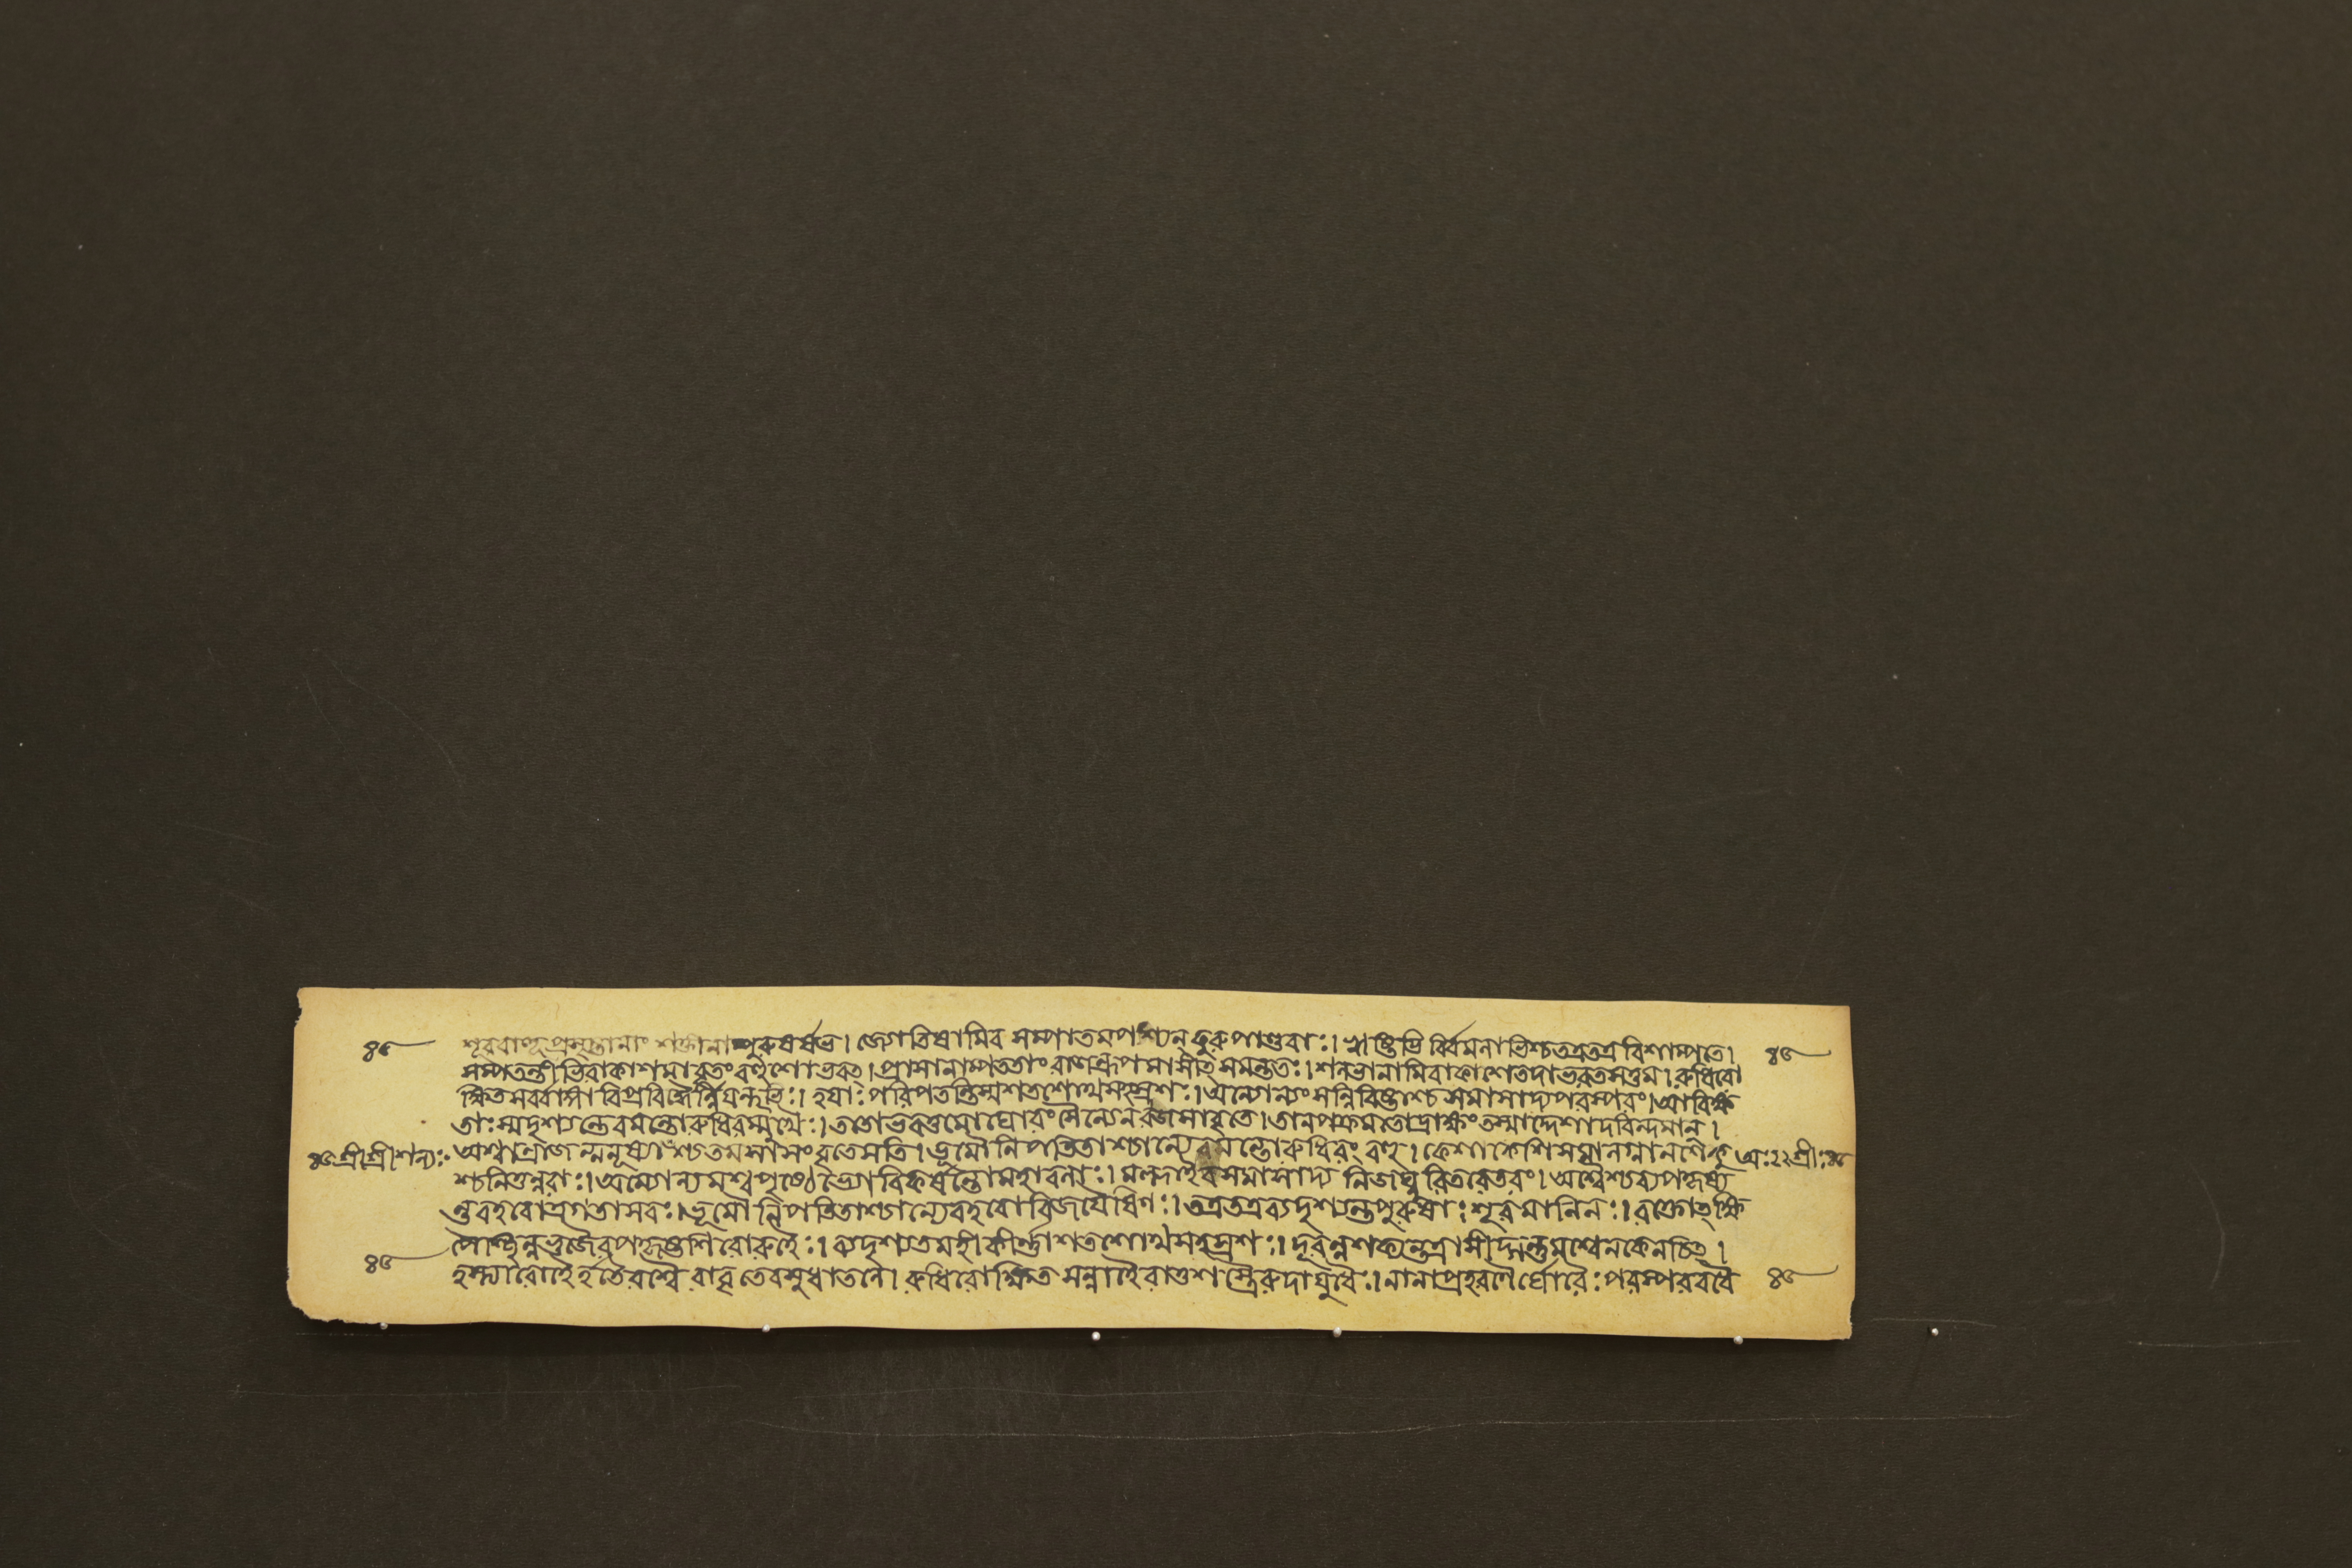 ৪৫ শূরবাহুপ্রসৃষ্টানাং শক্তীনাম্পুরুষর্ষভ। জ্যোতিষামিব সম্পাতমপশ্যন্ কুরুপাণ্ডবাঃ। ঋষ্টিভি র্বিমলাভিশ্চতত্রতত্র বিশাম্পতে। ৪৫
সম্পতন্তীভিরাকাশমাবৃতংবহ্বশোভবত্। প্রাসানাম্পততাং রাজন্রূপমাসীত্ সমন্ততঃ। শলভানামিবাকাশেতদাভরতসত্তম। রুধিরো
ক্ষিতসর্ব্বাঙ্গা বিপ্রবিদ্ধৈর্ন্নিয়ন্তৃভিঃ। হয়াঃ পরিপতন্তিস্মশতশোথসহস্রশঃ। অন্যোন্যংসন্নিবিষ্টাশ্চ সমাসাদ্যপরস্পরং। আবিক্ষ
তাঃ স্মদৃশ্যন্তেবমন্তোরুধিরম্মুখৈঃ। ততোভবত্তমোঘোরং সৈন্যেনরজসাবৃতে। তানপক্রমতোদ্রাক্ষংতস্মাদ্দেশাদরিন্দমান্।
৪৫ শ্রীশ্রী শল্যঃ অশ্বান্রাজন্মনুষ্যাংশ্চতমসাসংবৃতেসতি। ভূমৌনিপতিতাশ্চান্যেবমন্তোরুধিরং বহু। কেশাকেশিসমালগ্নানশেকু অঃ ২২ শ্রীঃ ৪৫
শ্চলিতুন্নরাঃ। অন্যোন্যমশ্বপৃষ্ঠেভ্যোবিকর্ষন্তোমহাবলাঃ। মল্লাইবসমাসাদ্য নিজঘ্নু রিতরেতরং। অশ্বৈশ্চব্যপকৃষ্য
ন্তবহবোত্রগতাসবঃ। ভূমৌ নিপতিতাশ্চান্যেবহবোবিজয়ৈষিণঃ। তত্রতত্রব্যদৃশ্যন্তপুরুষাঃ শূরমানিনঃ। রক্তোক্ষি
তৈশ্ছিন্নভুজৈরপকৃষ্টশিরোরুহৈঃ। ব্যদৃশ্যতমহীকীর্ণ্ণাশতশোথসহস্রশঃ। দূরন্নশক্যন্তত্রাসীদ্গন্তুমশ্বেনকেনচিত্।
৪৫ হস্ত্যারোহৈর্হতৈরশ্বৈ রাবৃতেবসুধাতলে। রুধিরোক্ষিত সন্নাহৈরাত্তশস্ত্রৈরুদায়ুধৈঃ। নানাপ্রহরণৈর্ঘোরৈঃ পরস্পরবধৈ ৪৫